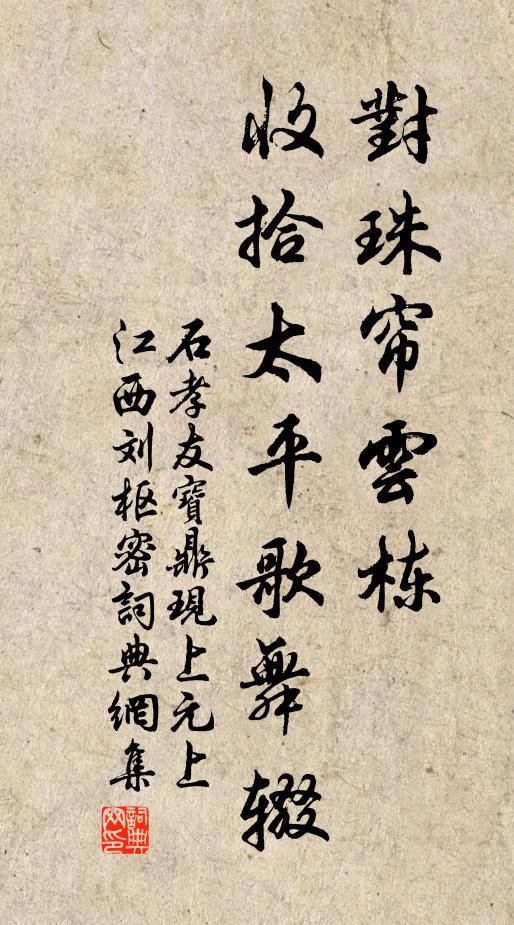 對珠帘雲栋
收拾太平歌舞辍
石孝友寶鼎現上元上
江西刘枢密詞典網集
詞典网印